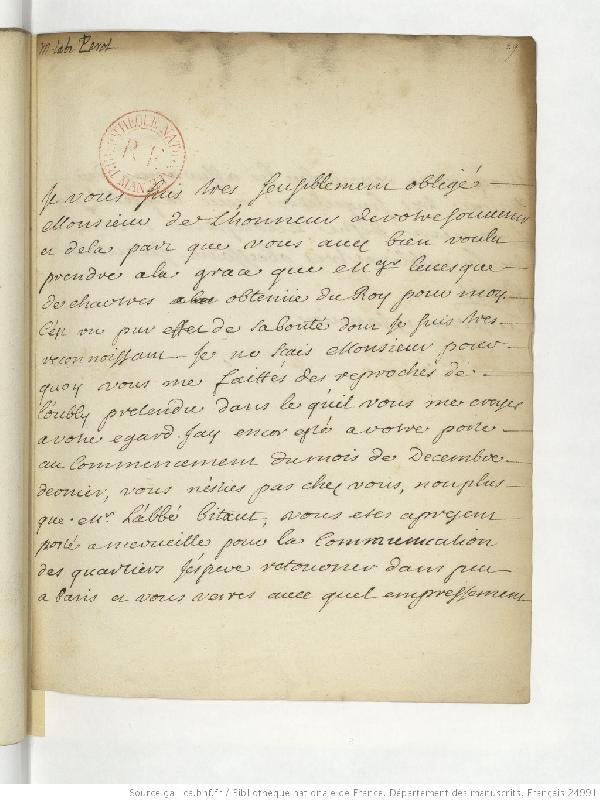 Mr l'abé Perot
29
BIBLIOTHEQUE NATIONALE MAN R F
Je vous suis tres sensiblement obligé
Monsieur de L'honneur devotre souvenir
et dela part que vous avez bien voulu
prendre ala grace que Mgr levesque
de chartres obtenüe du Roy pour moy
C'est un pur effet de sabonté dont je suis tres
reconnoissant Je ne scais Monsieur pour
quoy vous me faittés des reproches de
l'oubly pretendu dans le quil vous me croyes
avotre egard Jay encor esté avotre porte
au Commencement dumois de Decembre
dernier, vous nésties pas chez vous, nonplus
que Mr. L'abbé bitaut, vous etes apresent
posté amerveille pour la Communication
des quartiers Jéspere retourner dans peu
a Paris et vous verres avec quel empressement
Source gallica.bnf.fr / Bibliothèque nationale de France. Département des manuscrits. Français 24991